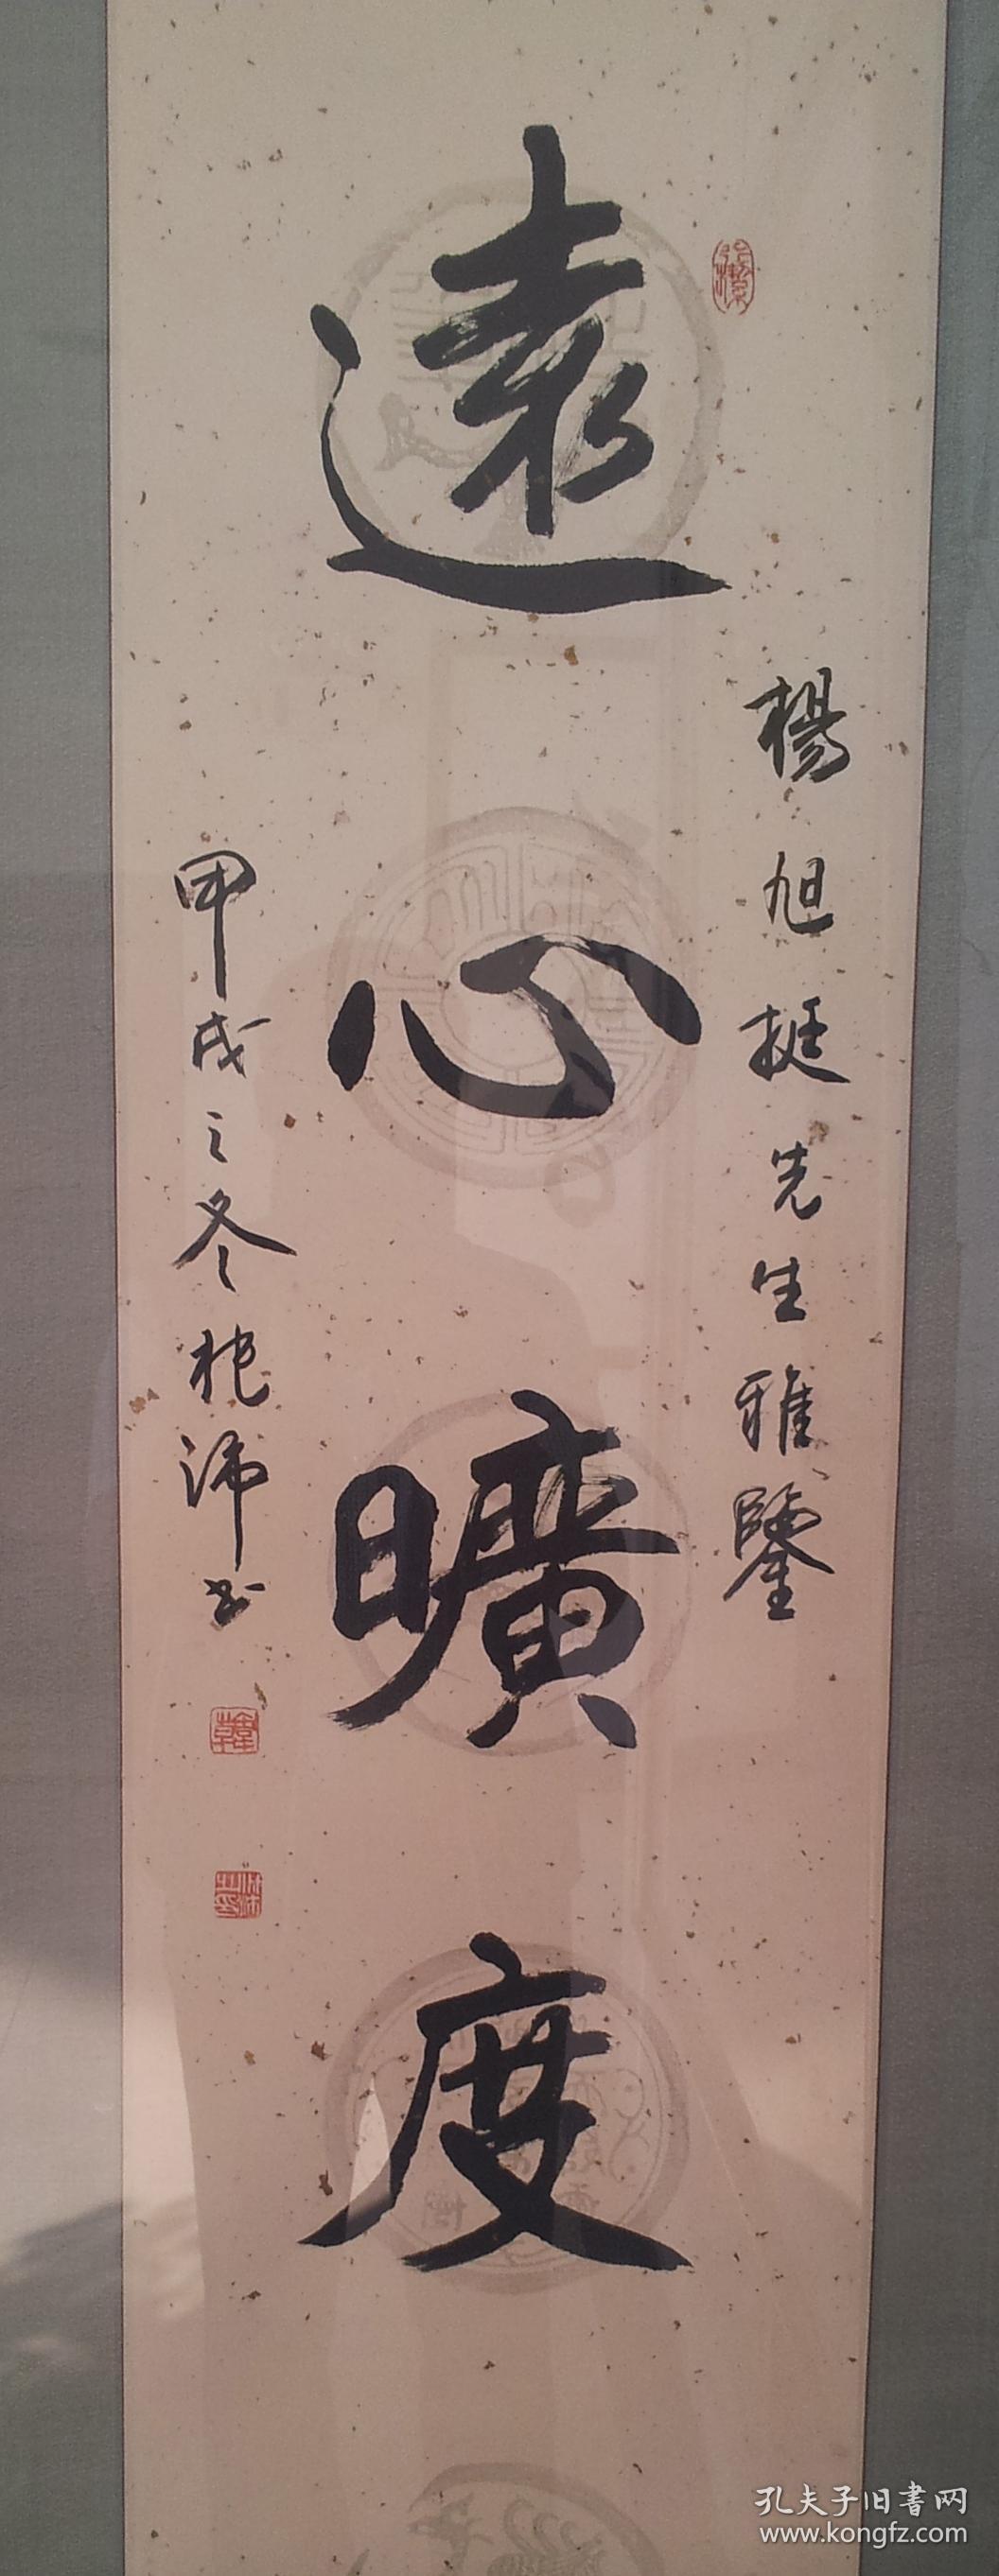 楊旭挺先生雅鑒
遠心曠度
甲戌之冬 沛书
孔夫子旧書网
www.kongfz.com